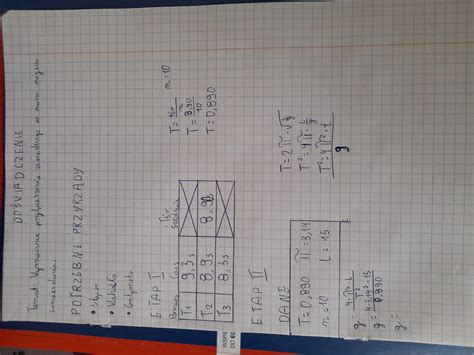 DOŚWIADCZENIE
Temat: Wyznaczanie przyspieszenia ziemskiego w moim miejscu
zamieszkania.
POTRZEBNE PRZYRZĄDY
• Stoper
• Wahadło
• Centymetr
ETAP I
Pomiar Czas t śr
T1 9,3s
T2 8,9s 8,9s
T3 8,3s
n=10
T= t śr / n
T= 8,90 / 10
T= 0,890
ETAP II
DANE
T= 0,890 π=3,14
n=10 L=15
T=2π·√l/g
T²=4π²·l/g
T²=4π²·l
g
g= 4·π²·l / T²
g= 4·3,14²·15 / 0,890
g=